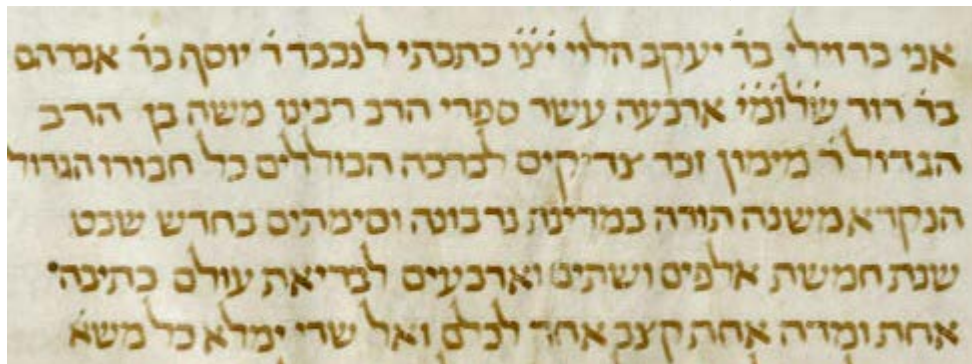 אני ברזילי בר׳ יעקב הלוי יצ״ו כתבתי לנכבד ר׳ יוסף בר׳ אברהם
בר׳ דוד ש׳ל׳ו׳מ׳י׳ ארבעה עשר ספרי הרב רבינו משה בן הרב
הגדול ר׳ מימון זכר צדיקים לברכה הכוללים כל חבורו הגדול
הנקרא משנה תורה במדינת נרבונה וסימתים בחדש שבט
שנת חמשת אלפים ושתים וארבעים לבריאת עולם כתיבה
אחת ומדה אחת קצב אחד לכלם ואל שדי ימלא כל משא